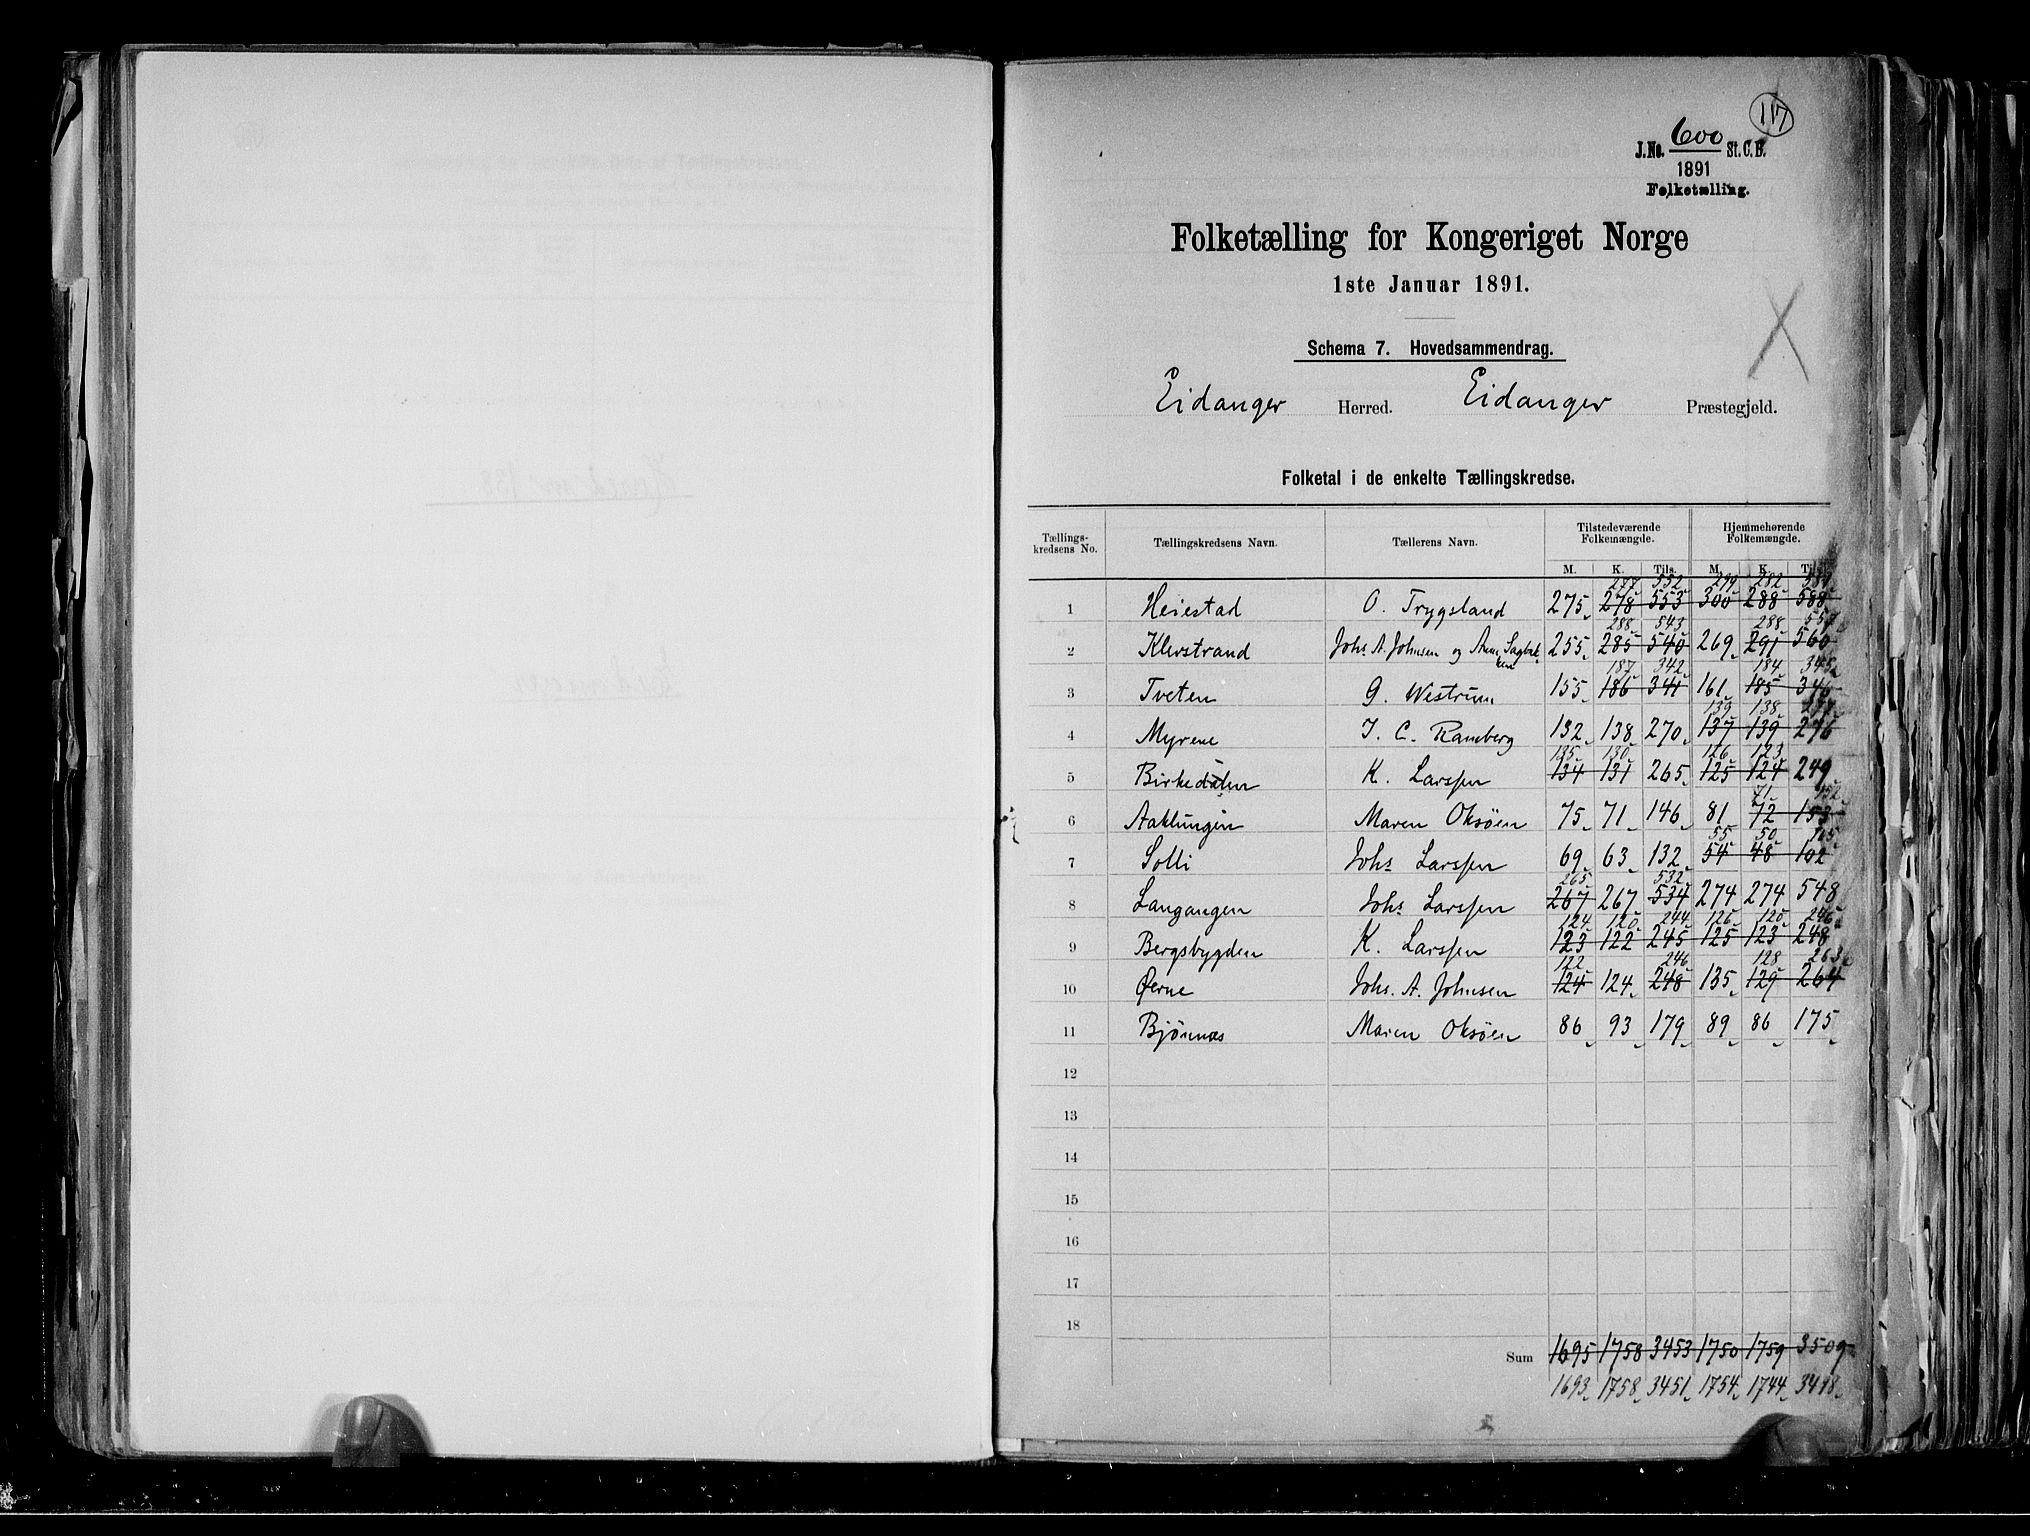 117
J.No. 600 St.C.B.
1891
Folketælling.
Folketælling for Kongeriget Norge
1ste Januar 1891.
Schema 7. Hovedsammendrag.
Eidanger Herred. Eidanger Præstegjeld.
Folketal i de enkelte Tællingskredse.
Tællings-kredsens No. Tællingskredsens Navn. Tællerens Navn. Tilstedeværende Folkemængde. Hjemmehørende Folkemængde.
M. K. Tils. M. K. Tils.
277 552 299 282 581
1 Heiestad O. Trygsland 275 278 553 300 288 588
288 543 288 557
2 Klevstrand Johs. A. Johnsen og 255 285 540 269 291 560
187 342 184 345
3 Tveten G. Westrum 155 186 341 161 185 346
139 138 277
4 Myrene J. C. Ramberg 132 138 270 137 139 276
135 130 126 123
5 Birkedalen K. Larssen 134 131 265 125 124 249
71 152
6 Aaklungen Maren Oksøen 75 71 146 81 72 153
55 50 105
7 Solli Johs Larssen 69 63 132 54 48 102
265 532
8 Langangen Johs Larssen 267 267 534 274 274 548
124 120 244 126 120 246
9 Bergsbygden K. Larssen 123 122 245 125 123 248
122 246 128 263
10 Øerne Johs. A. Johnsen 124 124 248 135 129 264
11 Bjørnnæs Maren Oksøen 86 93 179 89 86 175
12
13
14
15
16
17
18
Sum 1695 1758 3453 1750 1759 3509
1693 1758 3451 1754 1744 3498